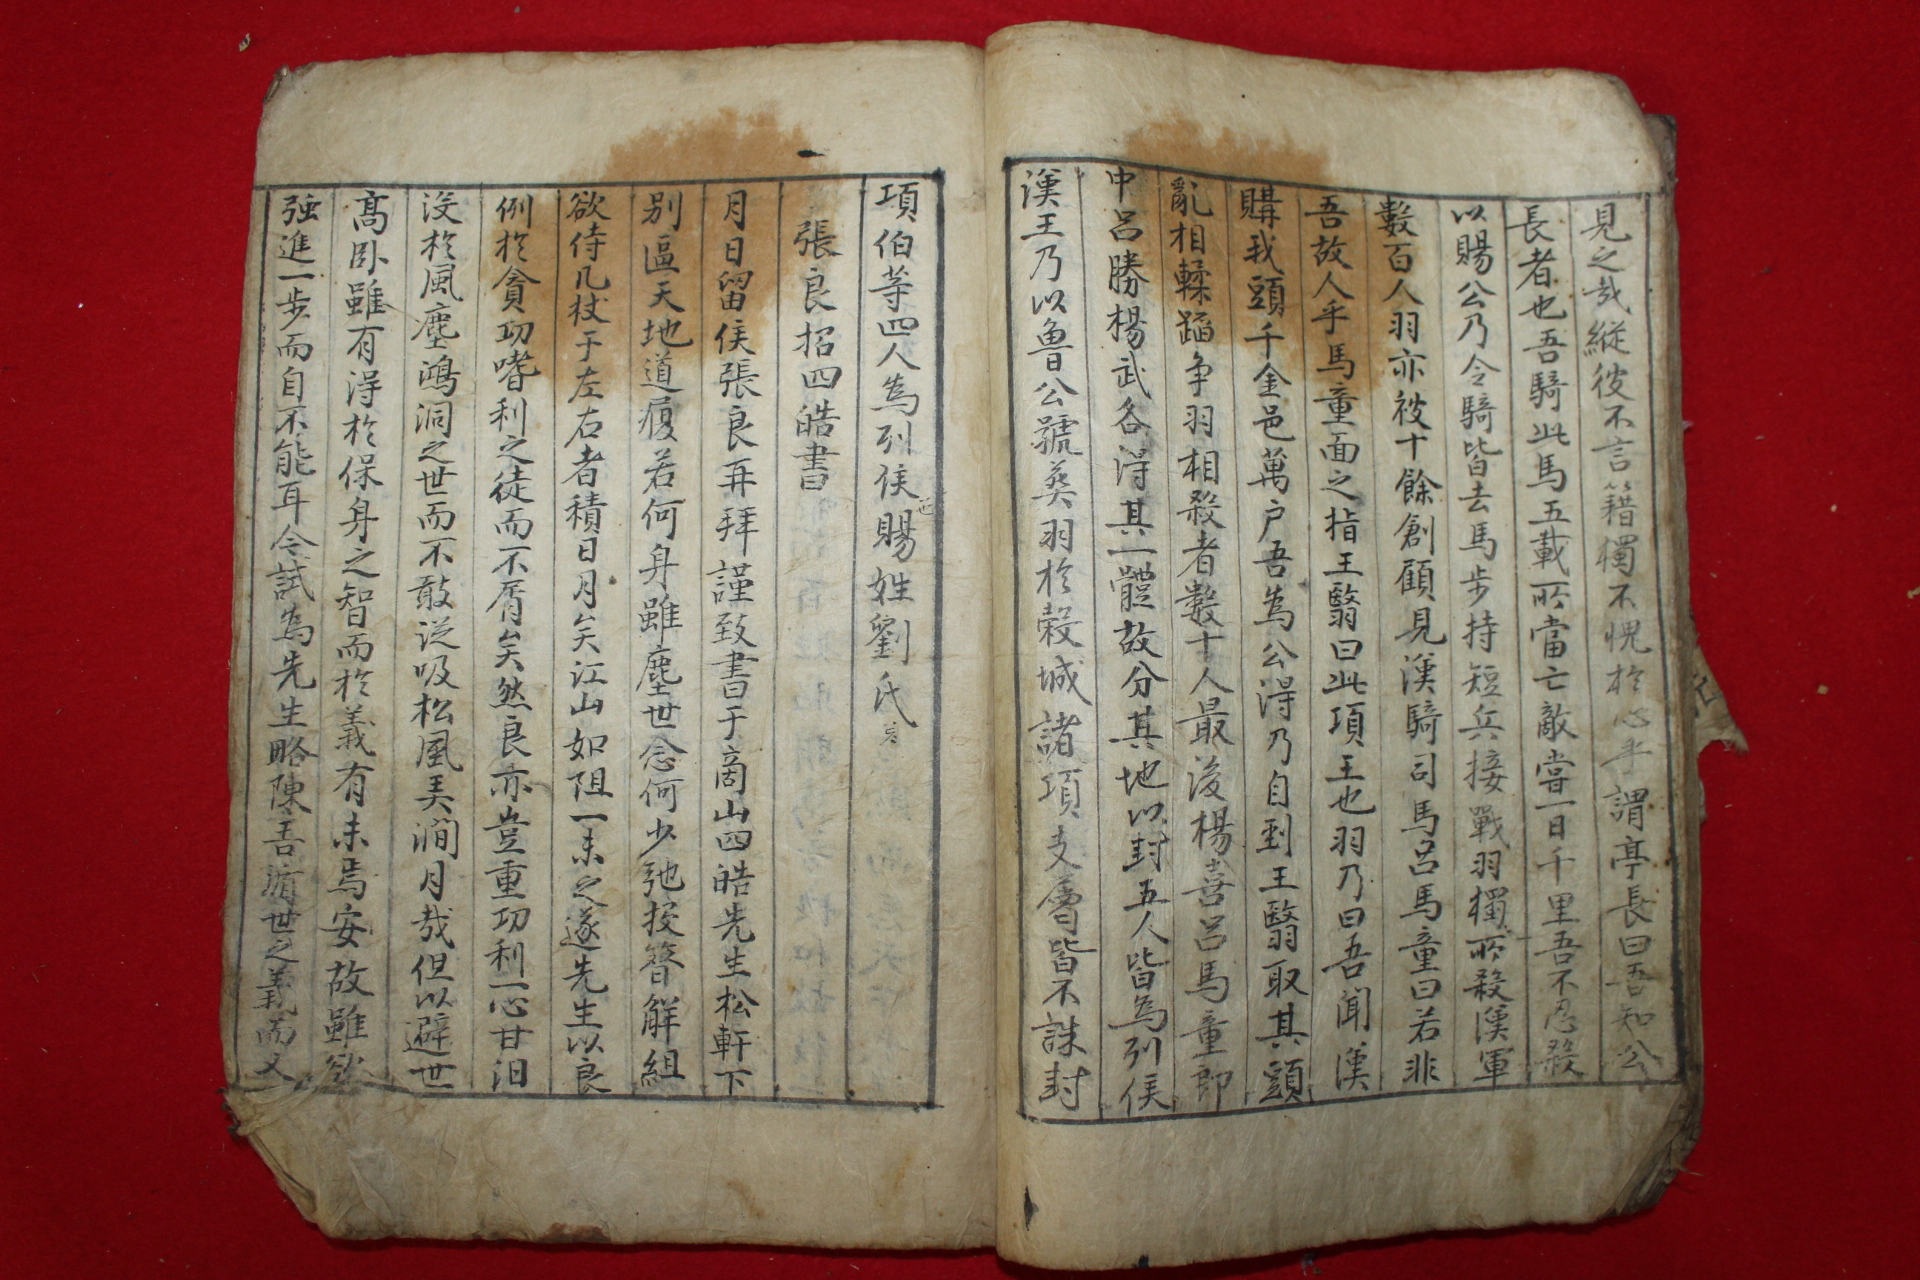 見之哉縱彼不言籍獨不愧於心乎謂亭長曰吾知公
長者也吾騎此馬五載所當亡敵嘗一日千里吾不忍殺
以賜公乃令騎皆去馬步持短兵接戰羽獨所殺漢軍
數百人羽亦被十餘創顧見漢騎司馬呂馬童曰若非
吾故人乎馬童面之指王翳曰此項王也羽乃曰吾聞漢
購我頭千金邑萬户吾為公得乃自刭王翳取其頭
亂相轢蹈争羽相殺者數十人最後楊喜呂馬童郎
中呂勝楊武各得其一體故分其地以封五人皆為列侯
漢王乃以魯公號葵羽於穀城諸項支屬皆不誅封
項伯等四人為列侯賜姓劉氏
張良招四皓書
月日留侯張良再拜謹致書于商山四皓先生松軒下
别區天地道履若何身雖塵世念何少弛投簪解組
欲侍几杖于左右者積日月矣江山如阻一未之遂先生以良
例於貪功嗜利之徒而不屑矣然良亦豈重功利一心甘汨
没於風塵鴻洞之世而不敢従吸松風美澗月哉但以避世
髙卧雖有得於保身之智而於義有未焉安故雖欲
强進一步而自不能耳今試為先生略陳吾濟世之義而又